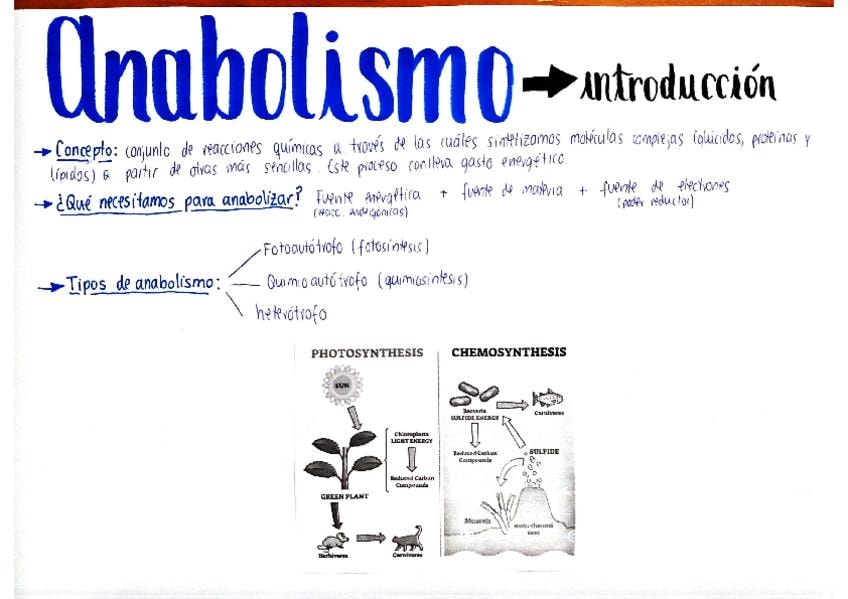 Anabolismo → introducción
→ Concepto: conjunto de reacciones químicas a través de las cuáles sintetizamos moléculas complejas (glúcidos, proteínas y
lípidos) a partir de otras más sencillas. Este proceso conlleva gasto energético.
→ ¿Qué necesitamos para anabolizar? Fuente energética + fuente de materia + fuente de electrones
(reacc. endergónicas) (poder reductor)
Fotoautótrofo (fotosíntesis)
→ Tipos de anabolismo: Quimioautótrofo (quimiosíntesis)
heterótrofo
PHOTOSYNTHESIS
SUN
Chloroplasts
LIGHT ENERGY
Reduced Carbon
Compounds
GREEN PLANT
Herbivores
Carnivores
CHEMOSYNTHESIS
Bacteria
SULFIDE ENERGY
Carnivores
Reduced Carbon
Compounds
SULFIDE
Minerals
vent